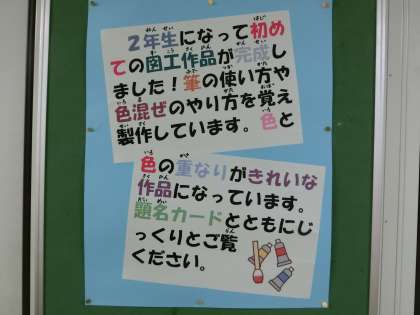 2年生になって初め
ての図工作品が完成し
ました!筆の使い方や
色混ぜのやり方を覚え
製作しています。色と
色の重なりがきれいな
作品になっています。
題名カードとともにじ
っくりとご覧
ください。